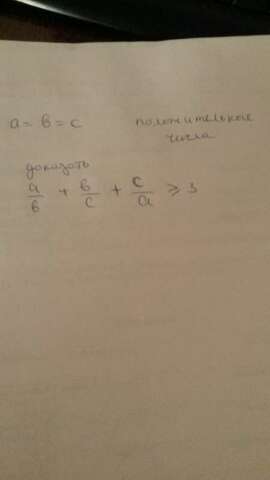 a = b = c положительные
числа
доказать
a/b + b/c + c/a ⩾ 3